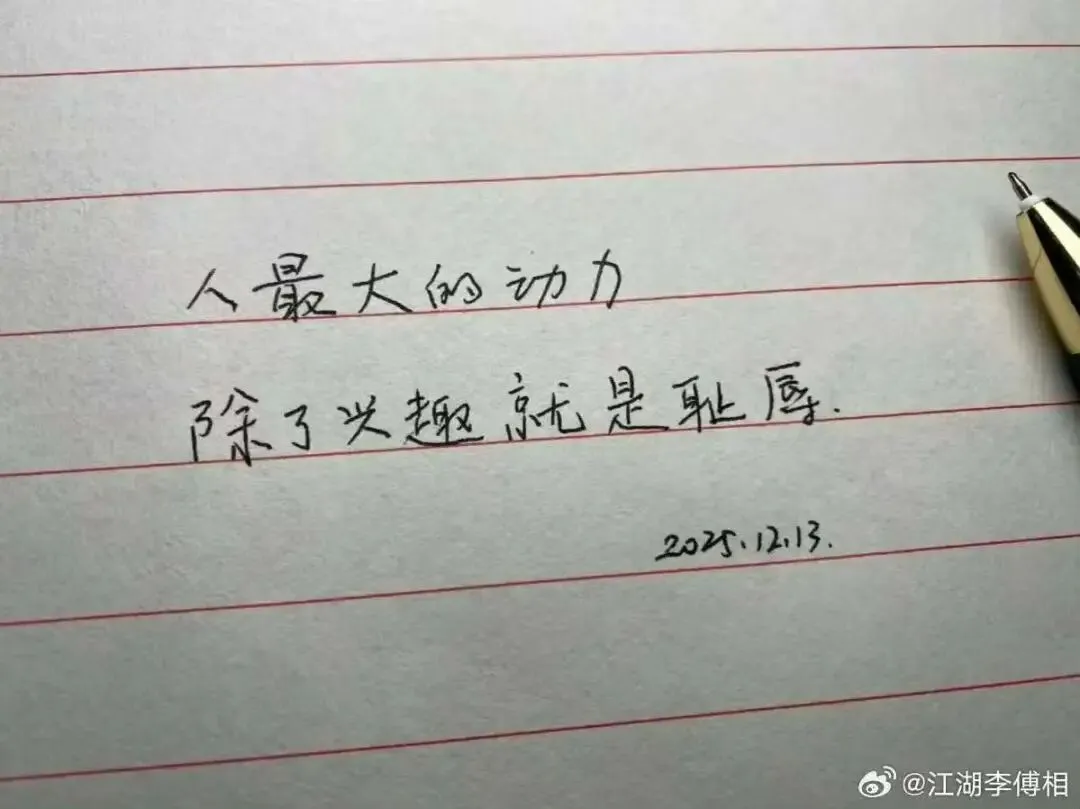 人最大的动力
除了兴趣就是耻辱.
2025.12.13.
@江湖李傅相